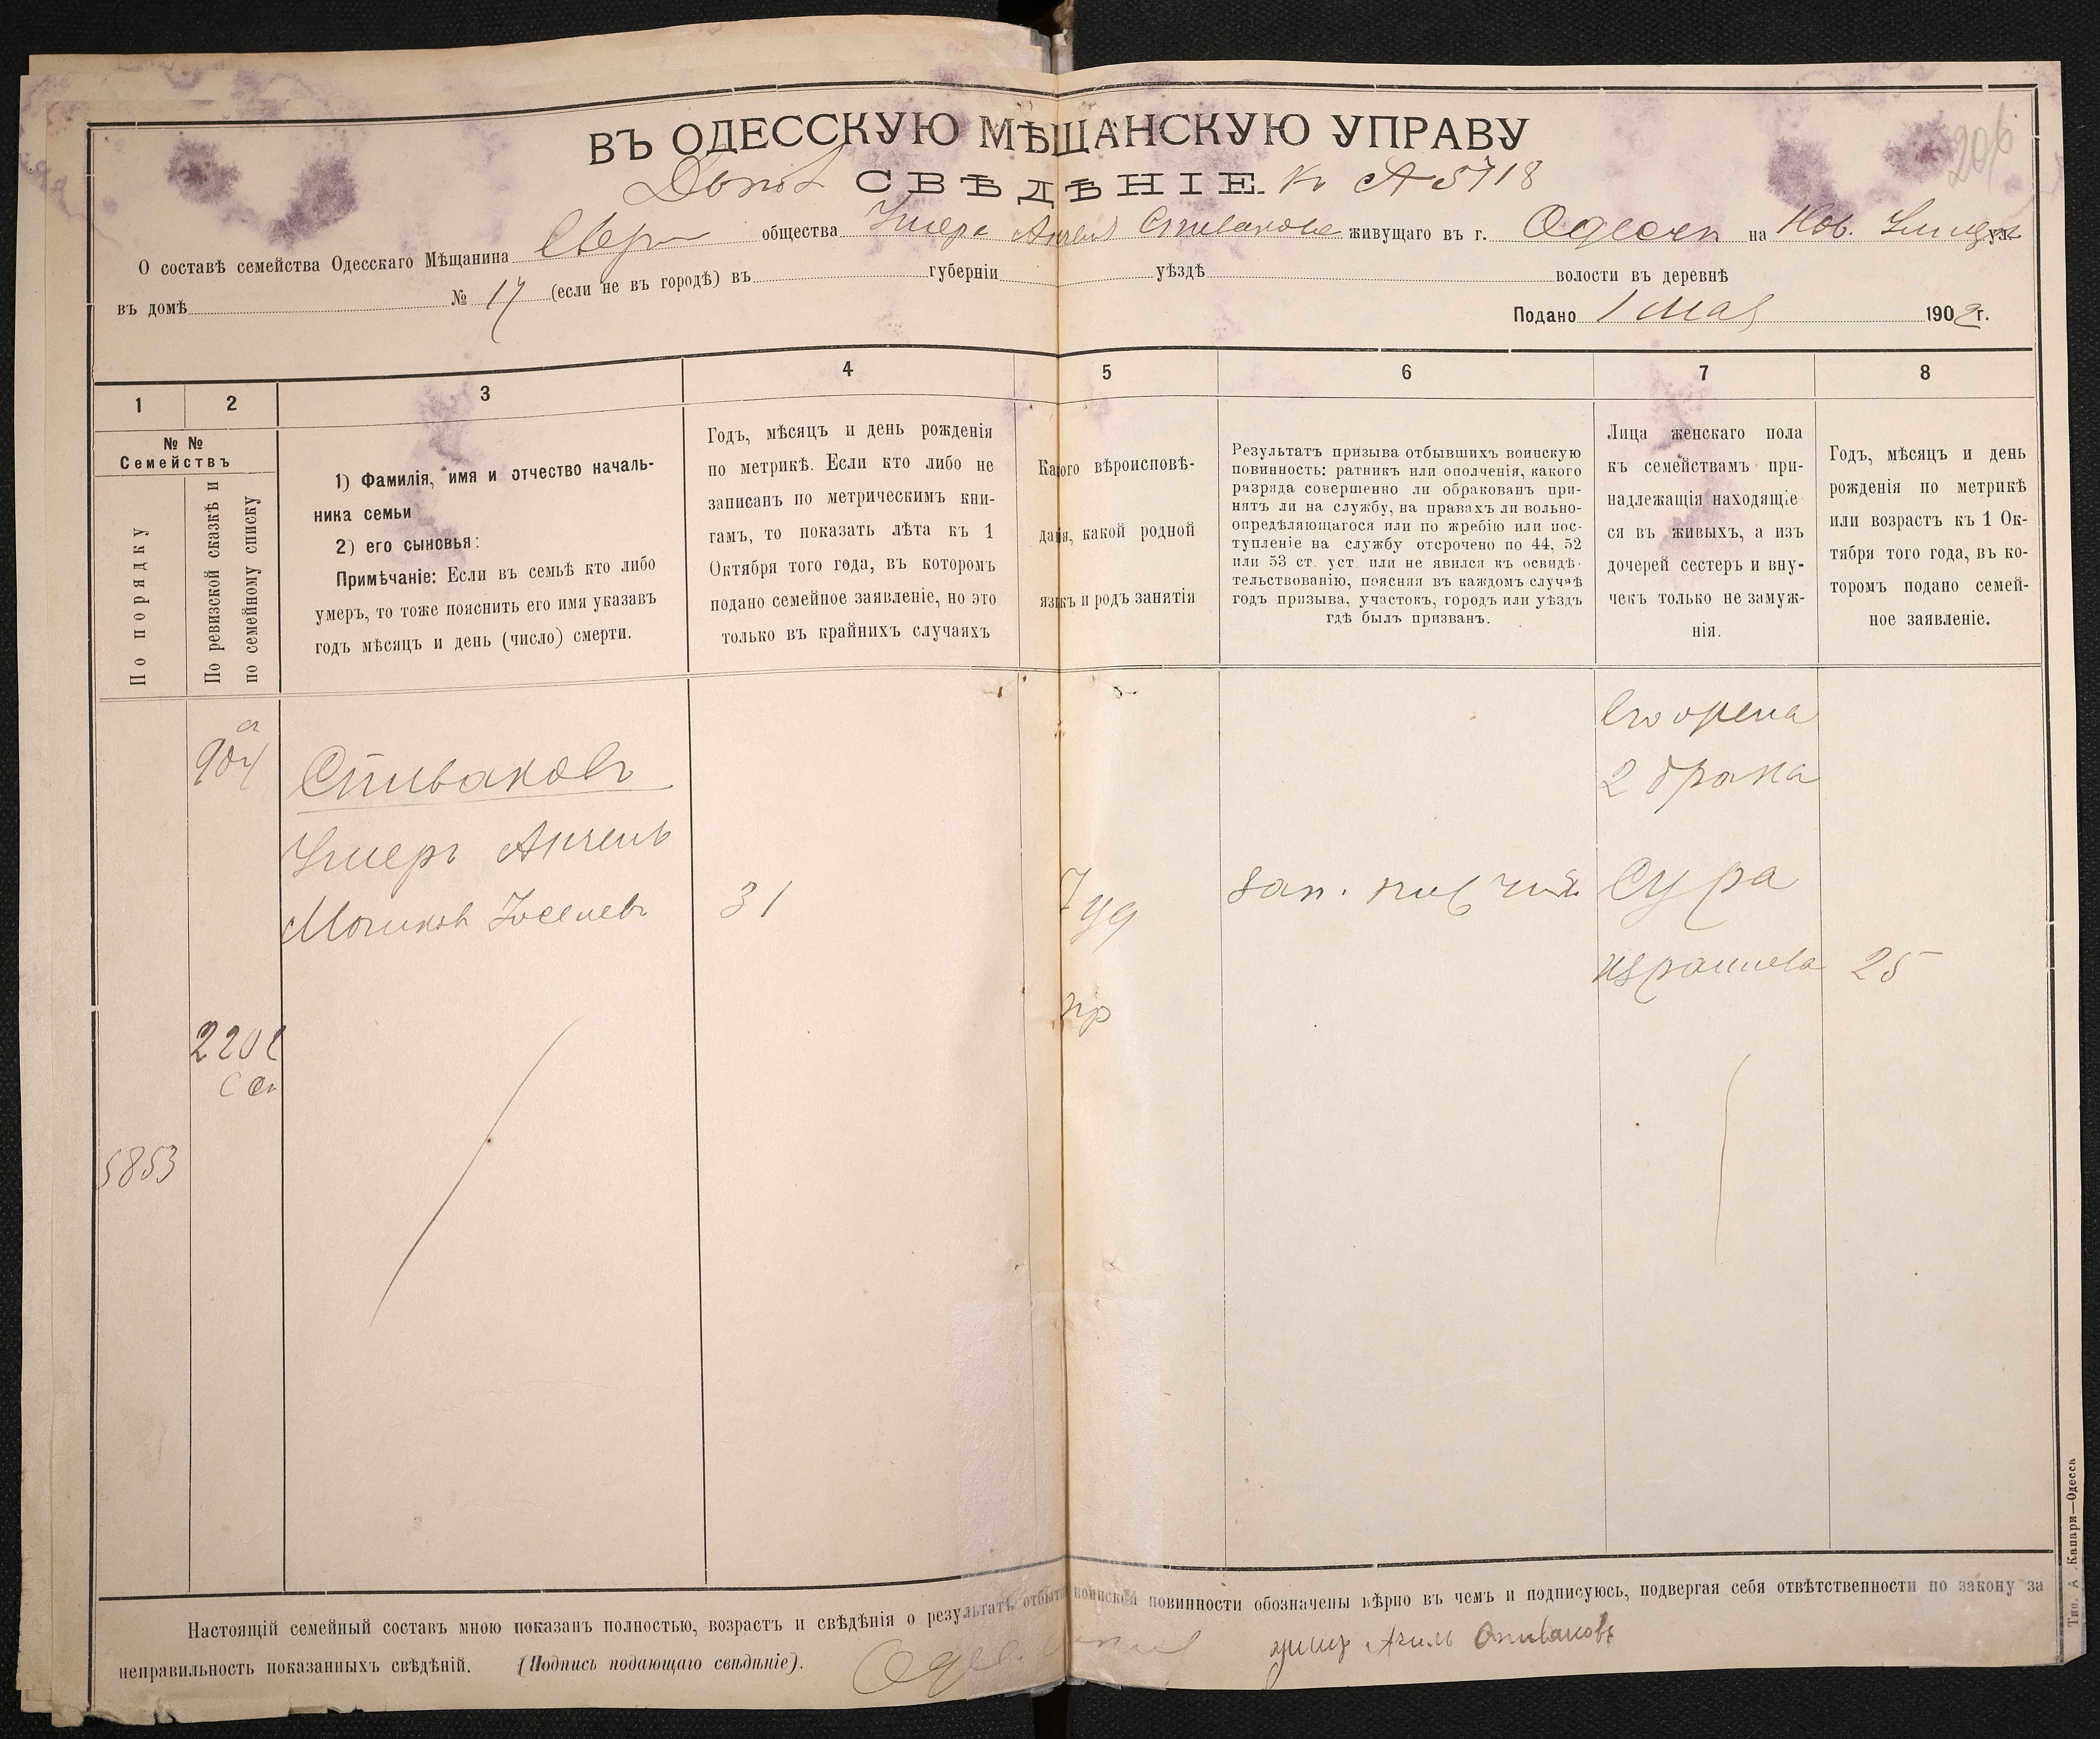 206
ВЪ ОДЕССКУЮ МѢЩАНСКУЮ УПРАВУ
СВѢДѢНІЕ. к А 5718
О составѣ семейства Одесскаго Мѣщанина Евр общества Умера Анчеля Спивакова живущаго въ г. Одессѣ на Нов. ул.
въ домѣ № 17 (если не въ городѣ) въ губерніи уѣздѣ волости въ деревнѣ
Подано 1 мая 1902 г.
1 2 3 4 5 6 7 8
№ №
Семействъ
По порядку
По ревизской сказкѣ и
по семейному списку
1) Фамилія, имя и отчество началь-
ника семьи
2) его сыновья:
Примѣчаніе: Если въ семьѣ кто либо
умеръ, то тоже пояснить его имя указавъ
годъ мѣсяцъ и день (число) смерти.
Годъ, мѣсяцъ и день рожденія
по метрикѣ. Если кто либо не
записанъ по метрическимъ кни-
гамъ, то показать лѣта къ 1
Октября того года, въ которомъ
подано семейное заявленіе, но это
только въ крайнихъ случаяхъ
Какого вѣроисповѣ-
данія, какой родной
языкъ и родъ занятія
Результатъ призыва отбывшихъ воинскую
повинность: ратникъ или ополченія, какого
разряда совершенно ли обракованъ при-
нятъ ли на службу, на правахъ ли вольно-
опредѣляющагося или по жребію или пос-
тупленіе на службу отсрочено по 44, 52
или 53 ст. уст. или не явился къ освидѣ-
тельствованію, поясняя въ каждомъ случаѣ
годъ призыва, участокъ, городъ или уѣздъ
гдѣ былъ призванъ.
Лица женскаго пола
къ семействамъ при-
надлежащія находящіе
ся въ живыхъ, а изъ
дочерей сестеръ и вну-
чекъ только не замуж-
нія.
Годъ, мѣсяцъ и день
рожденія по метрикѣ
или возрастъ къ 1 Ок-
тября того года, въ ко-
торомъ подано семей-
ное заявленіе.
904
Спиваковъ
Анчель
Іоселевъ
31
Іуд
пр
зап.
Его жена
2 брака
Сура
Израилева 25
5853
Настоящій семейный составъ мною показанъ полностью, возрастъ и свѣдѣнія о результатѣ отбытія воинской повинности обозначены вѣрно въ чемъ и подписуюсь, подвергая себя отвѣтственности по закону за
неправильность показанныхъ свѣдѣній. (Подпись подающаго свѣдѣніе).
Спиваковъ
Тип. А. Капари—Одесса